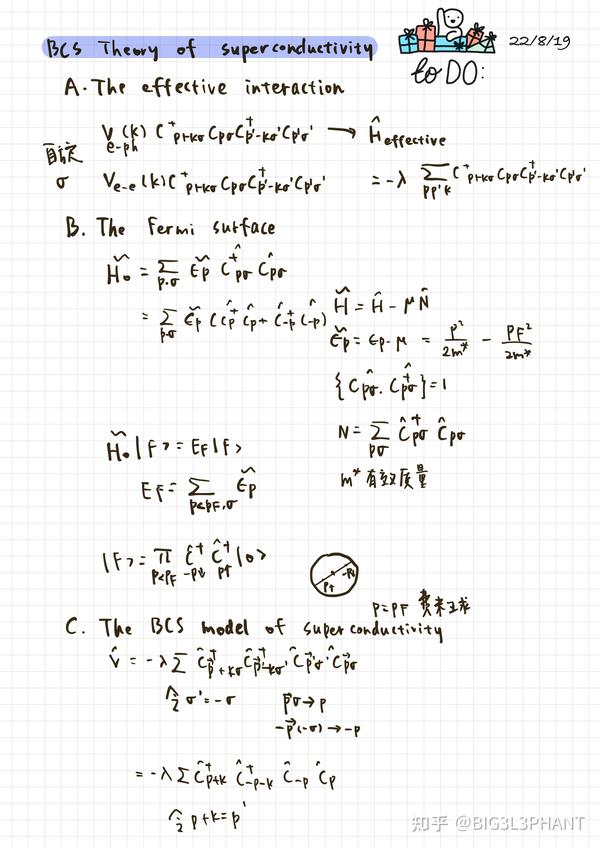 BCS Theory of superconductivity
to DO:
22/8/19
A. The effective interaction
V(k) C⁺p+kσ Cpσ C⁺p'-kσ' Cp'σ' → Ĥeffective
e-ph
自旋
σ Ve-e(k) C⁺p+kσ Cpσ C⁺p'-kσ' Cp'σ' = -λ Σpp'k C⁺p+kσ Cpσ C⁺p'-kσ' Cp'σ'
B. The Fermi surface
H̃₀ = Σp.σ ε̃p Ĉ⁺pσ Ĉpσ
= Σpσ ε̃p (Ĉ⁺p Ĉp + Ĉ⁺-p Ĉ-p)
H̃ = Ĥ - μN̂
ε̃p = εp - μ = p²/2m* - pF²/2m*
{Ĉpσ. Ĉ⁺pσ} = 1
N = Σpσ Ĉ⁺pσ Ĉpσ
m* 有效质量
H̃₀|F> = EF|F>
EF = Σp<pF,σ ε̃p
|F> = π p<pF Ĉ⁺-p↓ Ĉ⁺p↑ |0>
-p↓
p↑
p=pF 费米球
C. The BCS model of superconductivity
V̂ = -λ Σ Ĉ⁺p⃗+kσ Ĉ⁺p⃗'-kσ' Ĉp⃗'σ' Ĉp⃗σ
令 σ' = -σ
p⃗σ → p
-p⃗(-σ) → -p
= -λ Σ Ĉ⁺p+k Ĉ⁺-p-k Ĉ-p Ĉp
令 p+k = p'
知乎 @BIG3L3PHANT